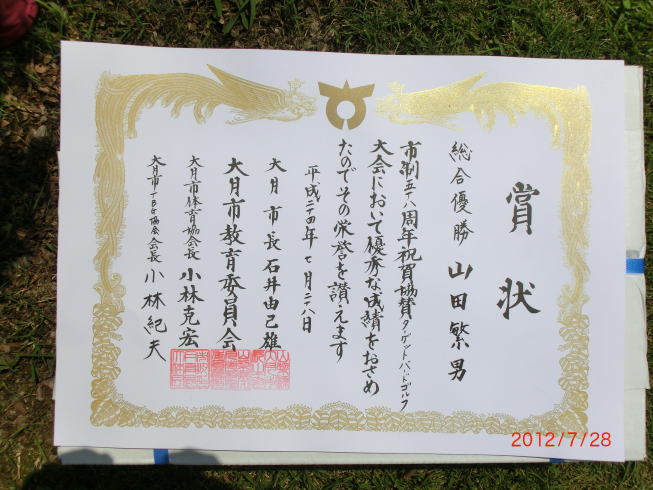 賞状
総合優勝 山田繁男
市制五十八周年祝賀協賛ターゲットバードゴルフ
大会において優秀な成績をおさめ
たのでその栄誉を讃えます
平成二十四年七月二十八日
大月市長 石井由己雄
大月市教育委員会
大月市体育協会長 小林克宏
大月市TBG協会会長 小林紀夫
2012/7/28